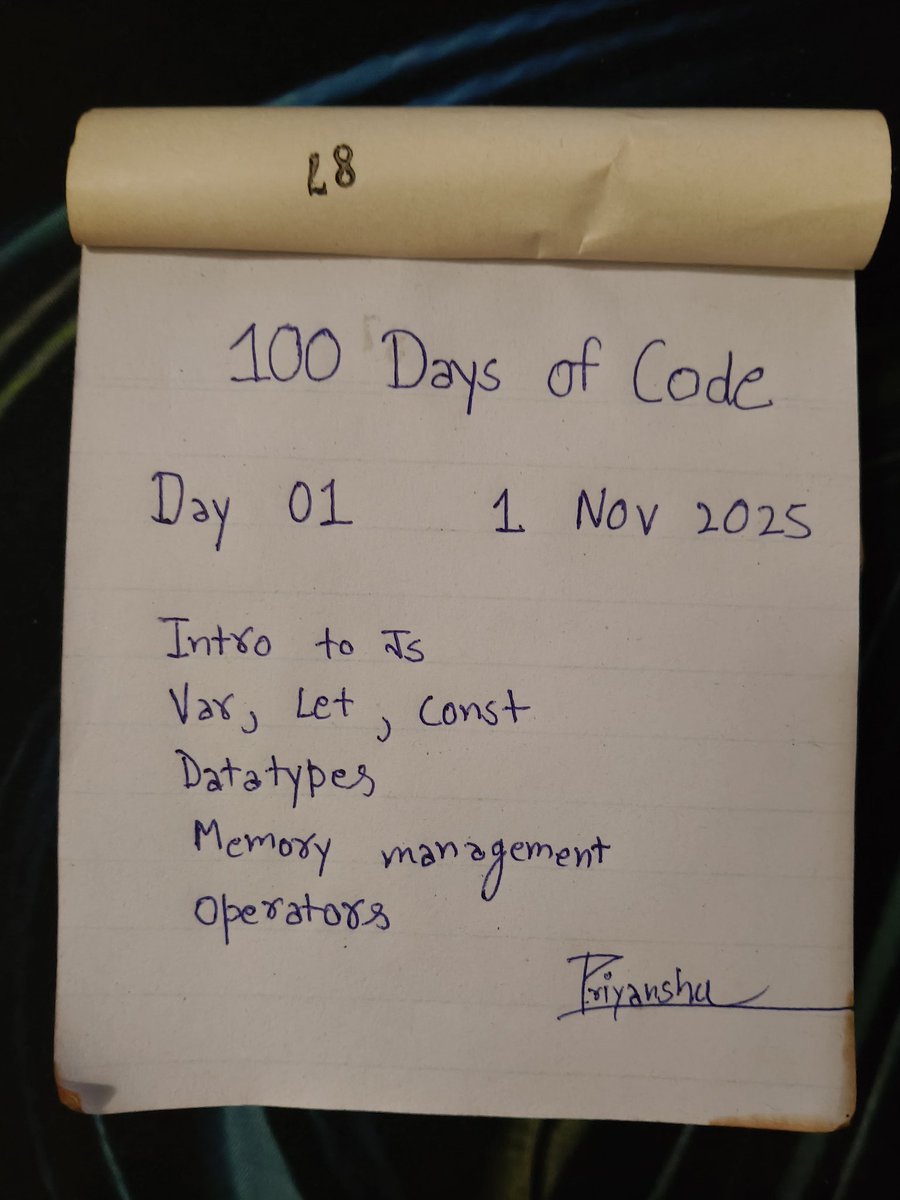 87
100 Days of Code
Day 01 1 Nov 2025
Intro to Js
Var, Let, Const
Datatypes
Memory management
Operators
Priyanshu